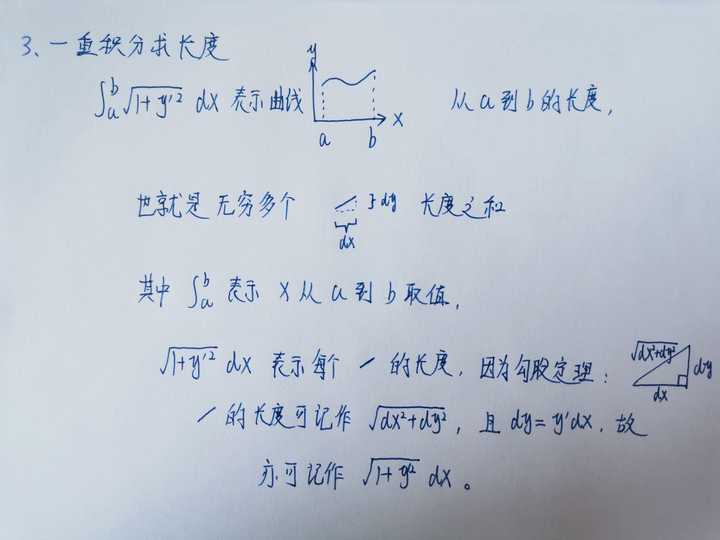 3、一重积分求长度
∫ₐᵇ √(1+y'²) dx 表示曲线 y x a b 从 a 到 b 的长度,
也就是无穷多个 dy dx 长度之和
其中 ∫ₐᵇ 表示 x 从 a 到 b 取值,
√(1+y'²) dx 表示每个 / 的长度, 因为勾股定理: √(dx²+dy²) dy dx
/ 的长度可记作 √(dx²+dy²), 且 dy=y'dx, 故
亦可记作 √(1+y'²) dx。